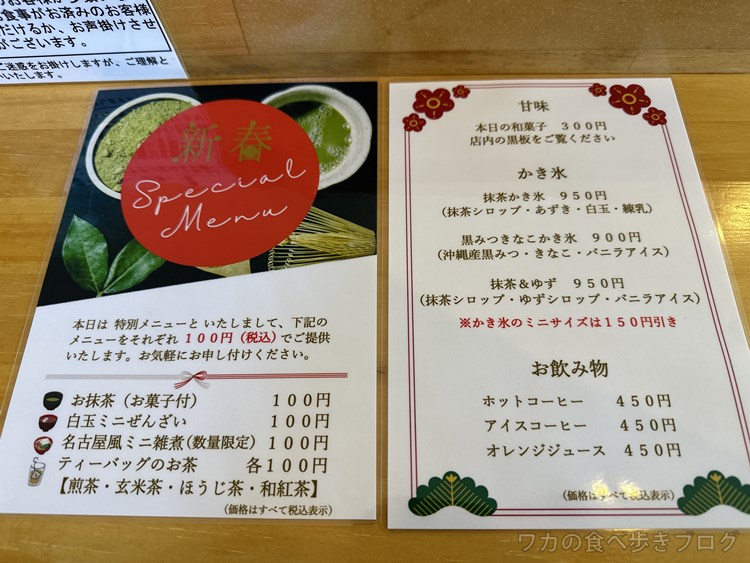 食事がお済みのお客様
だけるか、お声掛けさせ
がございます。
ご迷惑をお掛けしますが、ご理解と
いたします。
新春
Special
Menu
本日は 特別メニューと いたしまして、下記の
メニューをそれぞれ 100円 (税込) でご提供
いたします。お気軽にお申し付けください。
お抹茶（お菓子付） 100円
白玉ミニぜんざい 100円
名古屋風ミニ雑煮(数量限定) 100円
ティーバッグのお茶 各100円
【煎茶・玄米茶・ほうじ茶・和紅茶】
（価格はすべて税込表示）
甘味
本日の和菓子 300円
店内の黒板をご覧ください
かき氷
抹茶かき氷 950円
（抹茶シロップ・あずき・白玉・練乳）
黒みつきなこかき氷 900円
（沖縄産黒みつ・きなこ・バニラアイス）
抹茶＆ゆず 950円
（抹茶シロップ・ゆずシロップ・バニラアイス）
※かき氷のミニサイズは150円引き
お飲み物
ホットコーヒー 450円
アイスコーヒー 450円
オレンジジュース 450円
（価格はすべて税込表示）
ワカの食べ歩きブログ